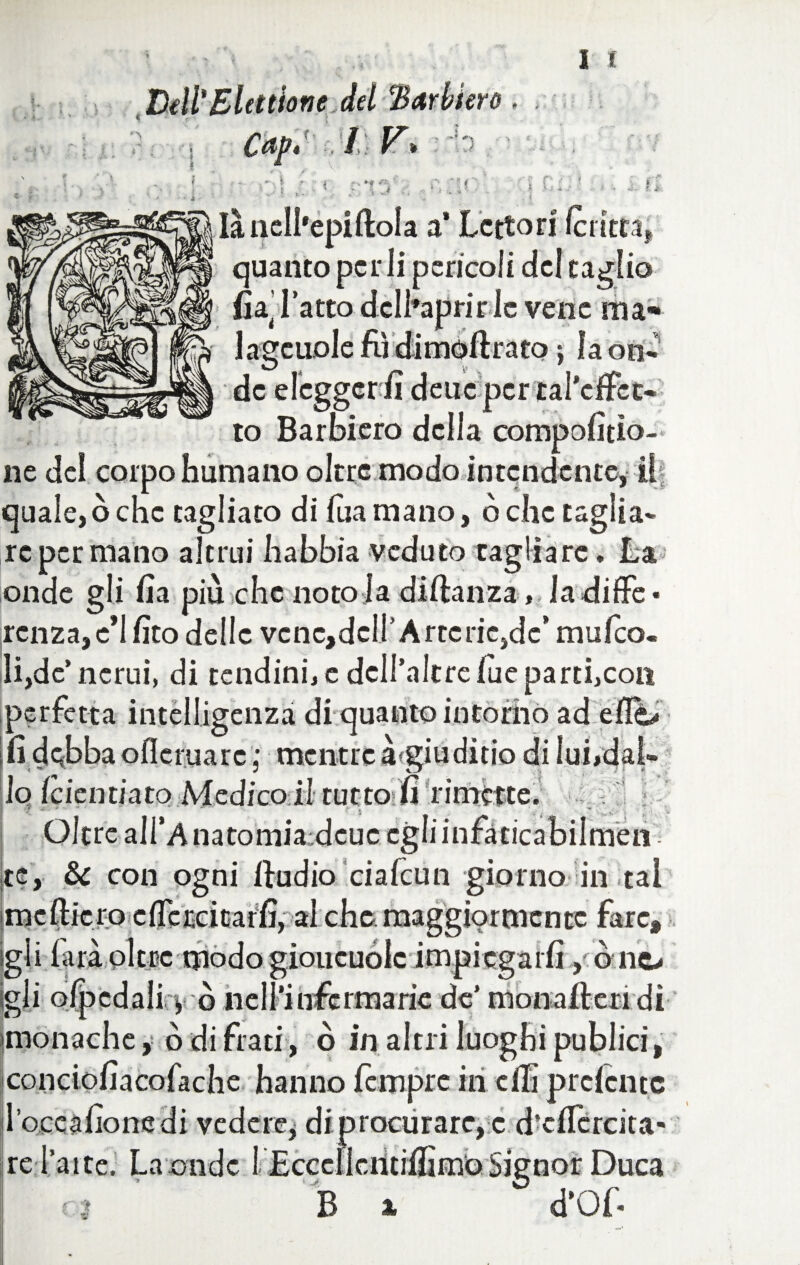 11
Dell'Elettione del Barbiero.
Cap. IV.
Già nell'epiſtola a' Lettori ſcritta,
quanto per li pericoli del taglio
ſia l'atto dell'aprir le vene ma-
lageuole fù dimoſtrato; la on-
de elegger ſi deue per tal'effet-
to Barbiero della compoſitio-
ne del corpo humano oltre modo intendente, il
quale, ò che tagliato di ſua mano, ò che taglia-
re per mano altrui habbia veduto tagliare. La
onde gli ſia più che noto la diſtanza, la diffe-
renza, e'l ſito delle vene, dell'Arterie, de' muſco-
li, de' nerui, di tendini, e dell'altre ſue parti, con
perfetta intelligenza di quanto intorno ad eſſe
ſi debba oſſeruare; mentre à giuditio di lui, dal-
lo ſcientiato Medico il tutto ſi rimette.
Oltre all'Anatomia deue egli infaticabilmen
te, & con ogni ſtudio ciaſcun giorno in tal
meſtiero eſſercitarſi, al che maggiormente fare,
gli ſarà oltre modo gioueuole impiegarſi, ò ne
gli oſpedali, ò nell'infermarie de' monaſteri di
monache, ò di frati, ò in altri luoghi publici,
concioſiacoſache hanno ſempre in eſſi preſente
l'occaſione di vedere, di procurare, e d'eſſercita-
re l'arte. La onde l'Eccellentiſſimo Signor Duca
B 2 d'Oſ-